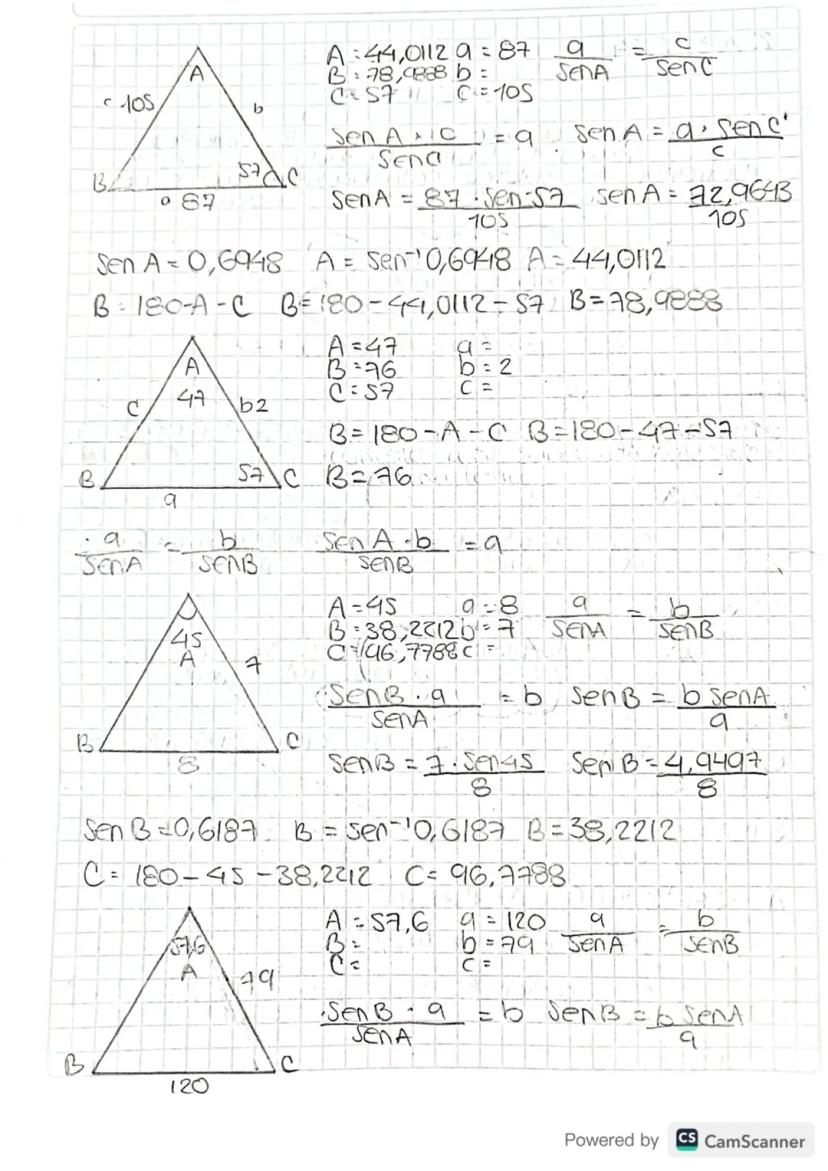 A
c 105
b
B
57 C
a 87
A = 44,0112 a = 87 a/senA = c/senC
B = 78,9888 b =
C = 57 c = 105
senA · c/senC = a senA = a · senC/c
senA = 87 · sen 57/105 senA = 72,9643/105
senA = 0,6948 A = sen⁻¹ 0,6948 A = 44,0112
B = 180-A-C B = 180-44,0112-57 B = 78,9888
A
47
c
b2
B
57 C
a
A = 47 a =
B = 76 b = 2
C = 57 c =
B = 180-A-C B = 180-47-57
B = 76
a/senA = b/senB senA · b/senB = a
45
A
7
B
C
8
A = 45 a = 8 a/senA = b/senB
B = 38,2212 b = 7
C = 96,7788 c =
senB · a/senA = b senB = b senA/a
senB = 7 · sen 45/8 senB = 4,9497/8
senB = 0,6187 B = sen⁻¹ 0,6187 B = 38,2212
C = 180-45-38,2212 C = 96,7788
57,6
A
79
B
C
120
A = 57,6 a = 120 a/senA = b/senB
B = b = 79
C = c =
senB · a/senA = b senB = b senA/a
Powered by CS CamScanner